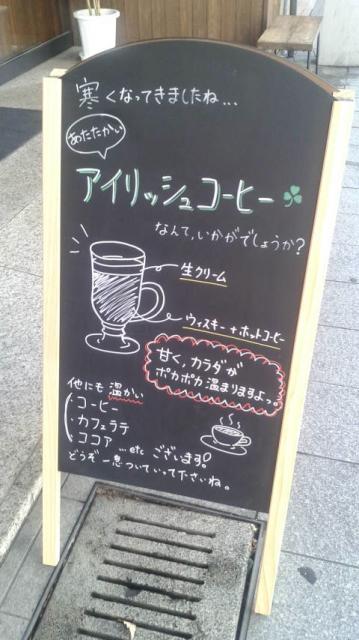 寒くなってきましたね...
あたたかい
アイリッシュコーヒー
なんて,いかがでしょうか?
生クリーム
ウィスキー+ホットコーヒー
甘く,カラダが
ポカポカ温まりますよっ。
他にも温かい
・コーヒー
・カフェラテ
・ココア ...etc ございます!
どうぞ一息ついていって下さいね。